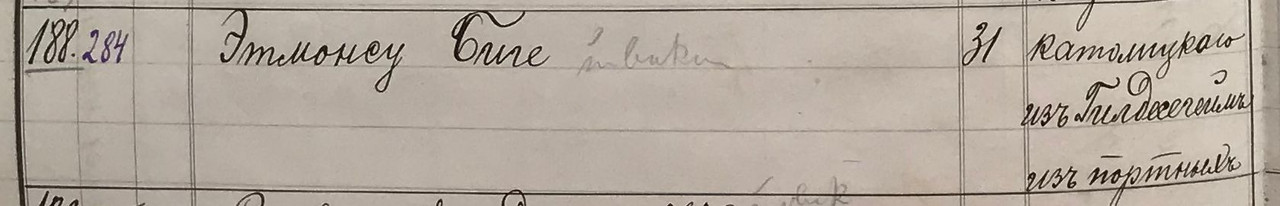 188. 284 Этмонсу Биге 31 католицкаго
изъ Гилдесгеймъ
изъ портныхъ